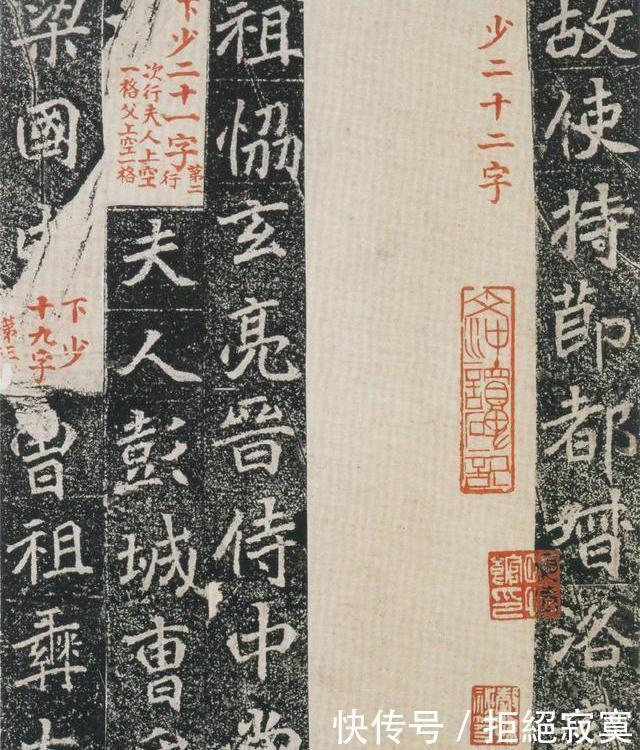 故使持節都督洛
少二十二字
祖恊玄亮晉侍中尚
下少二十一字
第二行
次行夫人上空
一格父上空一格
夫人彭城曹
梁國
下少
十九字
第三
曾祖彝
快传号 / 拒絕寂寞